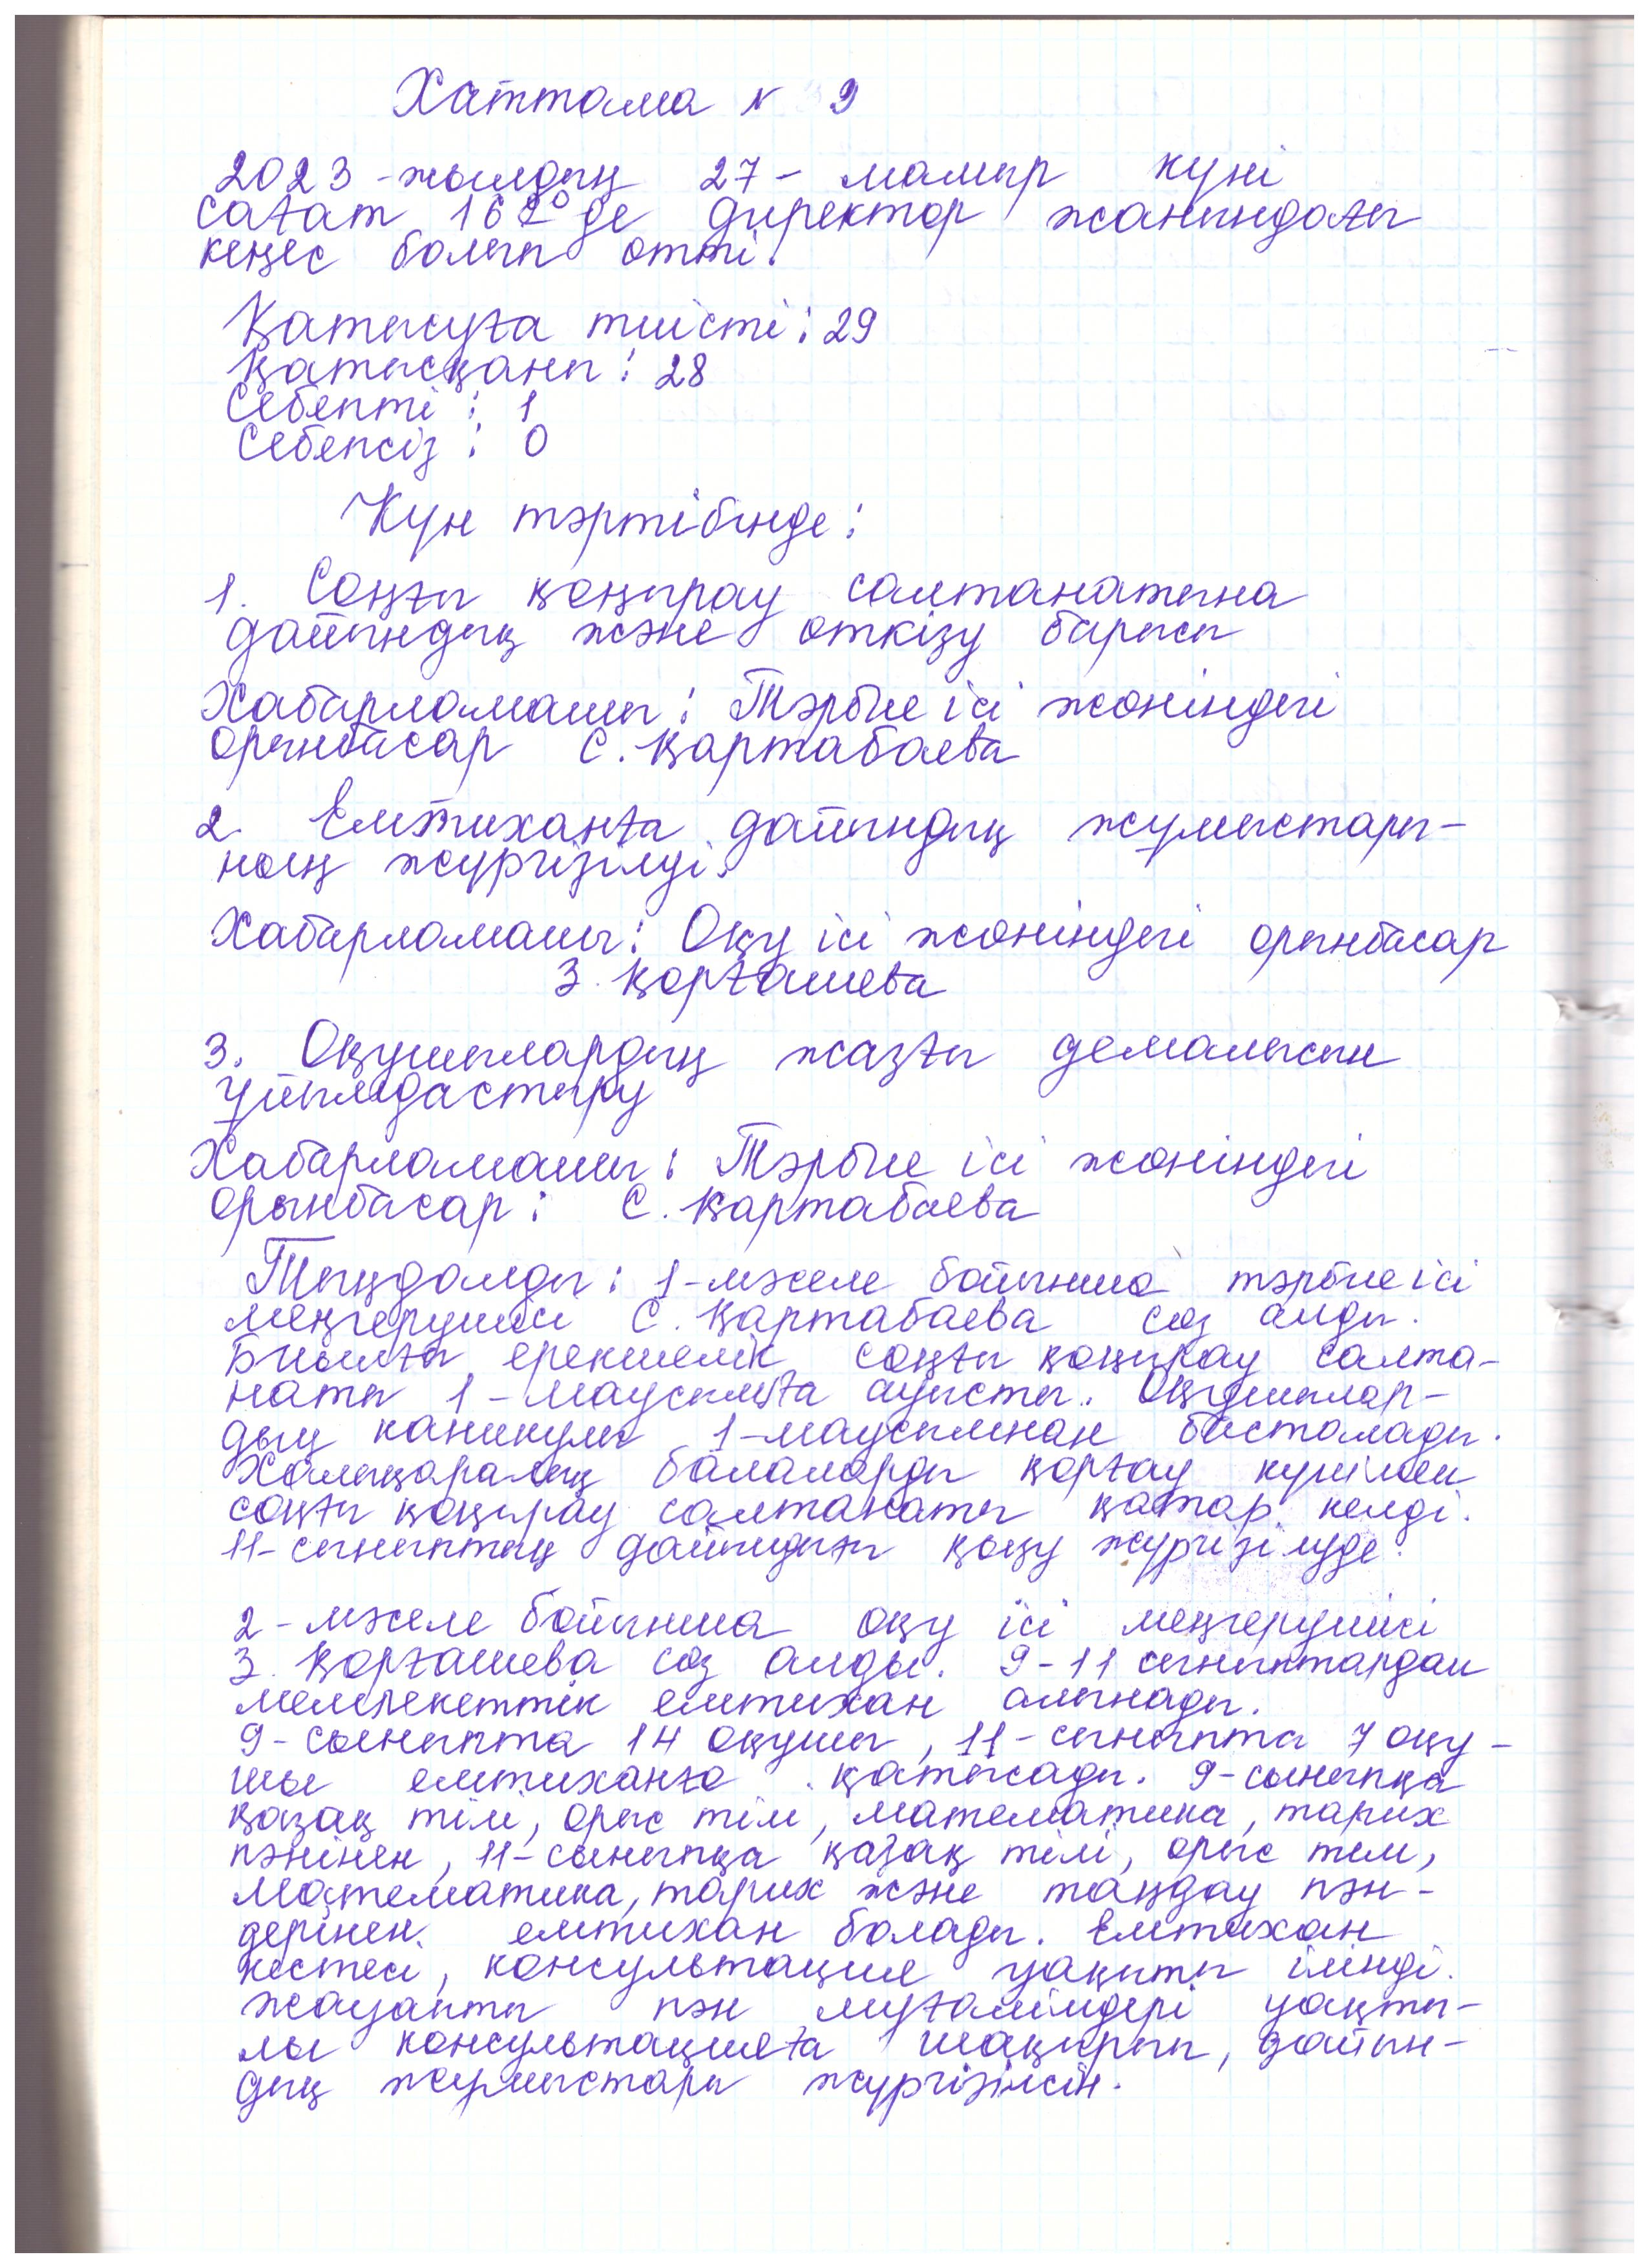 Хаттама N 9
2023-жылдың 27- мамыр күні
сағат 16⁰⁰ де директор жанындағы
кеңес болып өтті.
Қатысуға тиісті: 29
Қатысқаны: 28
Себепті: 1
Себепсіз: 0
Күн тәртібінде:
1. Соңғы қоңырау салтанатына
дайындық және өткізу барысы
Хабарламашы: Тәрбие ісі жөніндегі
орынбасар С. Қартабаева
2. Емтиханға дайындық жұмыстары-
ның жүргізілуі.
Хабарламашы: Оқу ісі жөніндегі орынбасар
З. Қорғашева
3. Оқушылардың жазғы демалысын
ұйымдастыру
Хабарламашы: Тәрбие ісі жөніндегі
орынбасар: С. Қартабаева
Тыңдалды: 1-мәселе бойынша тәрбие ісі
меңгерушісі С. Қартабаева сөз алды.
Биылғы ерекшелік соңғы қоңырау салта-
наты 1-маусымға ауысты. Оқушылар-
дың каникулы 1-маусымнан басталады.
Халықаралық балаларды қорғау күнімен
соңғы қоңырау салтанаты қатар келді.
11-сыныптың дайындығы қызу жүргізілуде.
2-мәселе бойынша оқу ісі меңгерушісі
З. Қорғашева сөз алды. 9-11 сыныптардан
мемлекеттік емтихан алынады.
9-сыныпта 14 оқушы, 11-сыныпта 7 оқу-
шы емтиханға қатысады. 9-сыныпқа
қазақ тілі, орыс тілі, математика, тарих
пәнінен, 11-сыныпқа қазақ тілі, орыс тілі,
математика, тарих және таңдау пән-
дерінен емтихан болады. Емтихан
кестесі, консультация уақыты ілінді.
Жауапты пән мұғалімдері уақты-
лы консультацияға шақырып, дайын-
дық жұмыстары жүргізілсін.